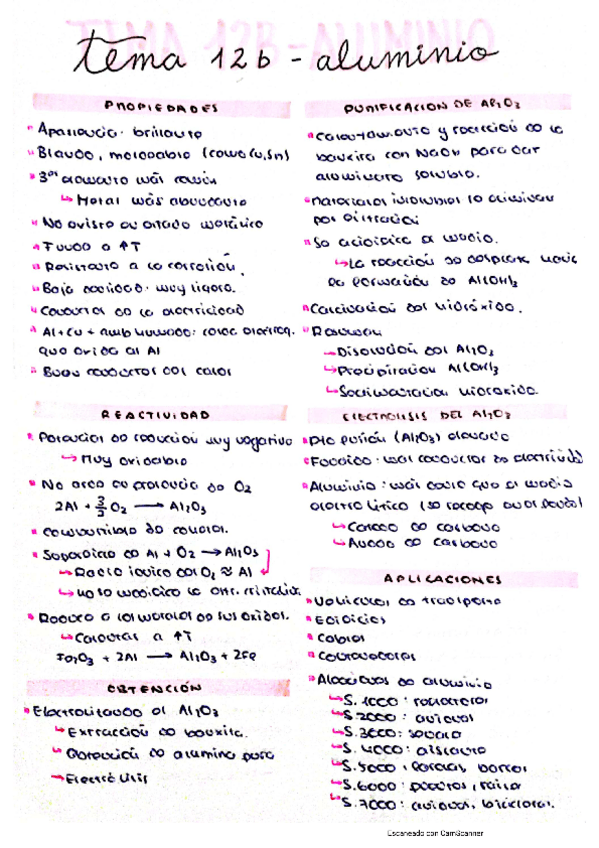 tema 12b - aluminio
PROPIEDADES
Apariencia: brillante
Blando, moldeable (como Cu, Sn)
3er elemento más común
↳ Metal más abundante
No existe en estado metálico
Funde a ↑T
Resistente a la corrosión.
Baja densidad: muy ligero.
Conductor de la electricidad
Al + Cu + amb humedo: celda
que oxida al Al
Buen conductor del calor
REACTIVIDAD
Potencial de reducción muy negativo
↳ Muy oxidable
No arde en presencia de O2
2Al + 3/3 O2 → Al2O3
combustible de cohetes.
Superficie de Al + O2 → Al2O3
↳ Radio iónico del O2 ≈ Al
↳ no se modifica la
Reduce a los metales de sus óxidos.
↳ Calentar a ↑T
Fe2O3 + 2Al → Al2O3 + 2Fe
OBTENCIÓN
Electrolizando el Al2O3
↳ Extracción de bauxita.
↳ Obtención de alumina pura
→ Electrólisis
PURIFICACION DE Al2O3
Calentamiento y reacción de la
bauxita con NaOH para dar
aluminato soluble.
Materiales insolubles se eliminan
por filtración
Se acidifica el medio.
↳ La reacción se desplaza hacia
la formación de Al(OH)3
Calcinación del hidróxido.
Resumen
→ Disolución del Al2O3
↳ Precipitación Al(OH)3
↳ Sedimentación hidróxido.
ELECTROLISIS DEL Al2O3
Pto fusión (Al2O3) elevado
Fundido: mal conductor de electricidad
Aluminio: más denso que el medio
electrolítico (se recoge en el fondo)
↳ Cátodo de carbono
↳ Ánodo de carbono
APLICACIONES
Vehículos de transporte
Edificios
Cables
Contenedores
Aleaciones de aluminio
↳ S. 1000:
↳ S. 2000: aviones
↳ S. 3000:
↳ S. 4000: aislante
↳ S. 5000:
↳ S. 6000: puertas,
↳ S. 7000: aviones, bicicletas.
Escaneado con CamScanner